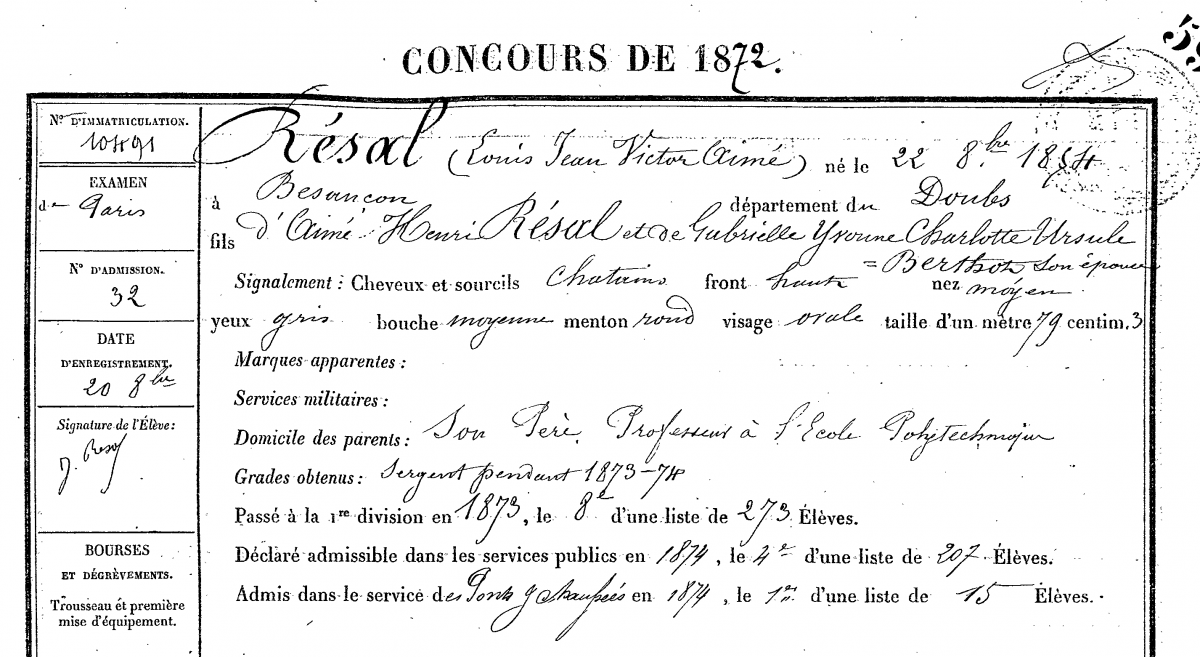 CONCOURS DE 1872.
59
N° D'IMMATRICULATION.
10491
EXAMEN
de Paris
N° D'ADMISSION.
32
DATE
D'ENREGISTREMENT.
20 8bre
Signature de l'Élève:
J. Résal
BOURSES
ET DÉGRÈVEMENTS.
Trousseau et première
mise d'équipement.
Résal (Louis Jean Victor Aimé) né le 22 8bre 1854
à Besançon département du Doubs
fils d'Aimé Henri Résal et de Gabrielle Yvonne Charlotte Ursule
= Berthot son épouse
Signalement : Cheveux et sourcils Chatains front haut nez moyen
yeux gris bouche moyenne menton rond visage ovale taille d'un mètre 79 centim. 3
Marques apparentes :
Services militaires :
Domicile des parents : Son Père, Professeur à l'Ecole Polytechnique
Grades obtenus : Sergent pendant 1873-74
Passé à la 1re division en 1873, le 8e d'une liste de 273 Élèves.
Déclaré admissible dans les services publics en 1874, le 4e d'une liste de 207 Élèves.
Admis dans le service des Ponts & chaussées en 1874, le 1er d'une liste de 15 Élèves.